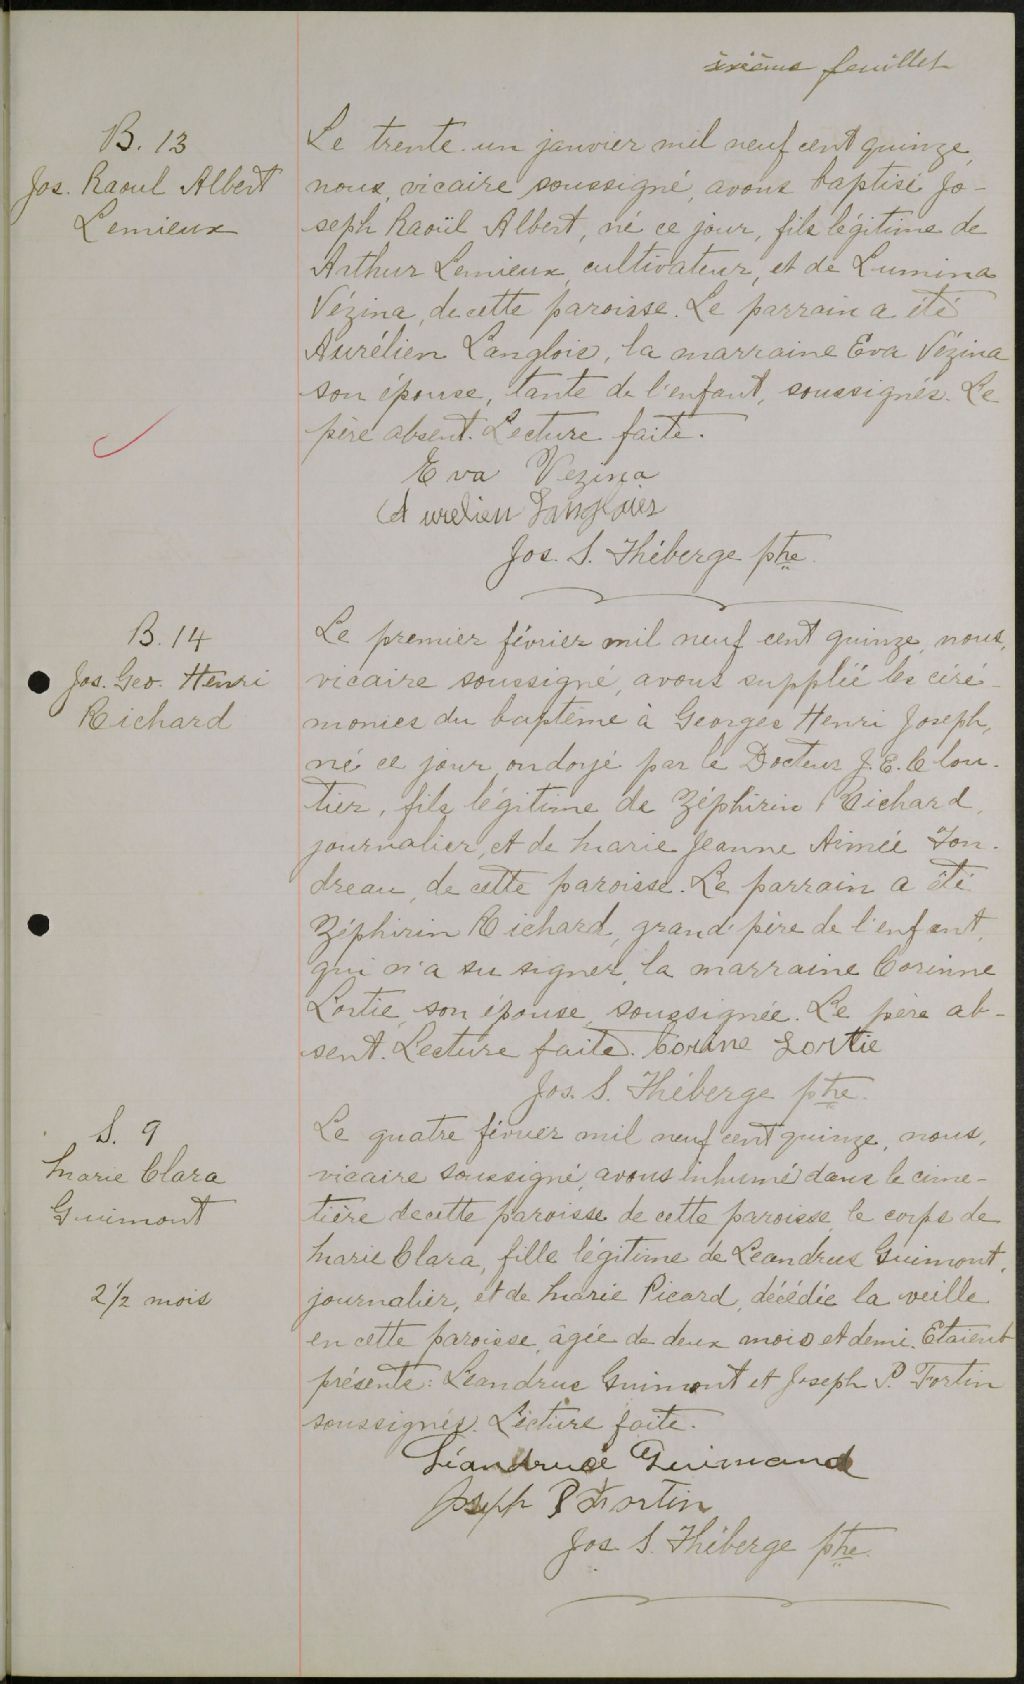 sixième feuillet
B. 13
Jos. Raoul Albert
Lemieux
Le trente-un janvier mil neuf cent quinze,
nous, vicaire soussigné, avons baptisé Jo-
seph Raoül Albert, né ce jour, fils légitime de
Arthur Lemieux, cultivateur, et de Lumina
Vézina, de cette paroisse. Le parrain a été
Aurélien Langlois, la marraine Eva Vézina
son épouse, tante de l'enfant, soussignés. Le
père absent. Lecture faite.
Eva Vezina
Aurelien Langlois
Jos. S. Théberge ptre
B. 14
Jos. Geo. Henri
Richard
Le premier février mil neuf cent quinze, nous,
vicaire soussigné, avons suppléé les céré-
monies du baptême à Georges Henri Joseph,
né ce jour, ondoyé par le Docteur J. E. Clou-
tier, fils légitime de Zéphirin Richard,
journalier, et de Marie Jeanne Aimée Ton-
dreau, de cette paroisse. Le parrain a été
Zéphirin Richard, grand'père de l'enfant,
qui n'a su signer, la marraine Corinne
Lortie, son épouse, soussignée. Le père ab-
sent. Lecture faite. Corine Lortie
Jos. S. Théberge ptre
S. 9
Marie Clara
Guimont
2 1/2 mois
Le quatre février mil neuf cent quinze, nous,
vicaire soussigné, avons inhumé dans le cime-
tière de cette paroisse de cette paroisse, le corps de
Marie Clara, fille légitime de Leandrus Guimont,
journalier, et de Marie Picard, décédée la veille
en cette paroisse, âgée de deux mois et demi. Etaient
présents: Leandrus Guimont et Joseph P. Fortin
soussignés. Lecture faite.
Léandruse Guimand
Joseph P Fortin
Jos. S. Théberge ptre